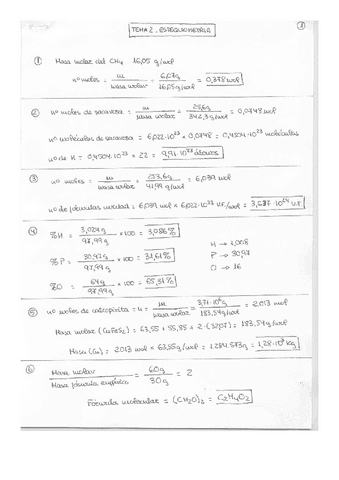 TEMA 2. ESTEQUIOMETRÍA
1
① Masa molar del CH4 16,05 g/mol
nº moles = m / masa molar = 6,07g / 16,05 g/mol = 0,378 mol
② nº moles de sacarosa = m / masa molar = 25,6g / 342,3 g/mol = 0,0748 mol
nº moléculas de sacarosa = 6,022·10^23 × 0,0748 = 0,4504·10^23 moléculas
nº de H = 0,4504·10^23 × 22 = 9,91·10^23 átomos
③ nº moles = m / masa molar = 253,6g / 41,99 g/mol = 6,039 mol
nº de fórmulas unidad = 6,039 mol × 6,022·10^23 u.f/mol = 3,637·10^24 u.f
④ %H = 3,024g / 97,99g × 100 = 3,086%
%P = 30,97g / 97,99g × 100 = 31,61%
%O = 64g / 97,99g × 100 = 65,31%
H → 1,008
P → 30,97
O → 16
⑤ nº moles de calcopirita = n = m / masa molar = 3,71·10^6 g / 183,54 g/mol = 2.013 mol
Masa molar (CuFeS2) = 63,55 + 55,85 + 2·(32,07) = 183,54 g/mol
Masa (Cu) = 2013 mol × 63,55 g/mol = 1.284.573 g = 1,28·10^3 Kg
⑥ Masa molar / Masa fórmula empírica = 60g / 30g = 2
Fórmula molecular = (CH2O)2 = C2H4O2